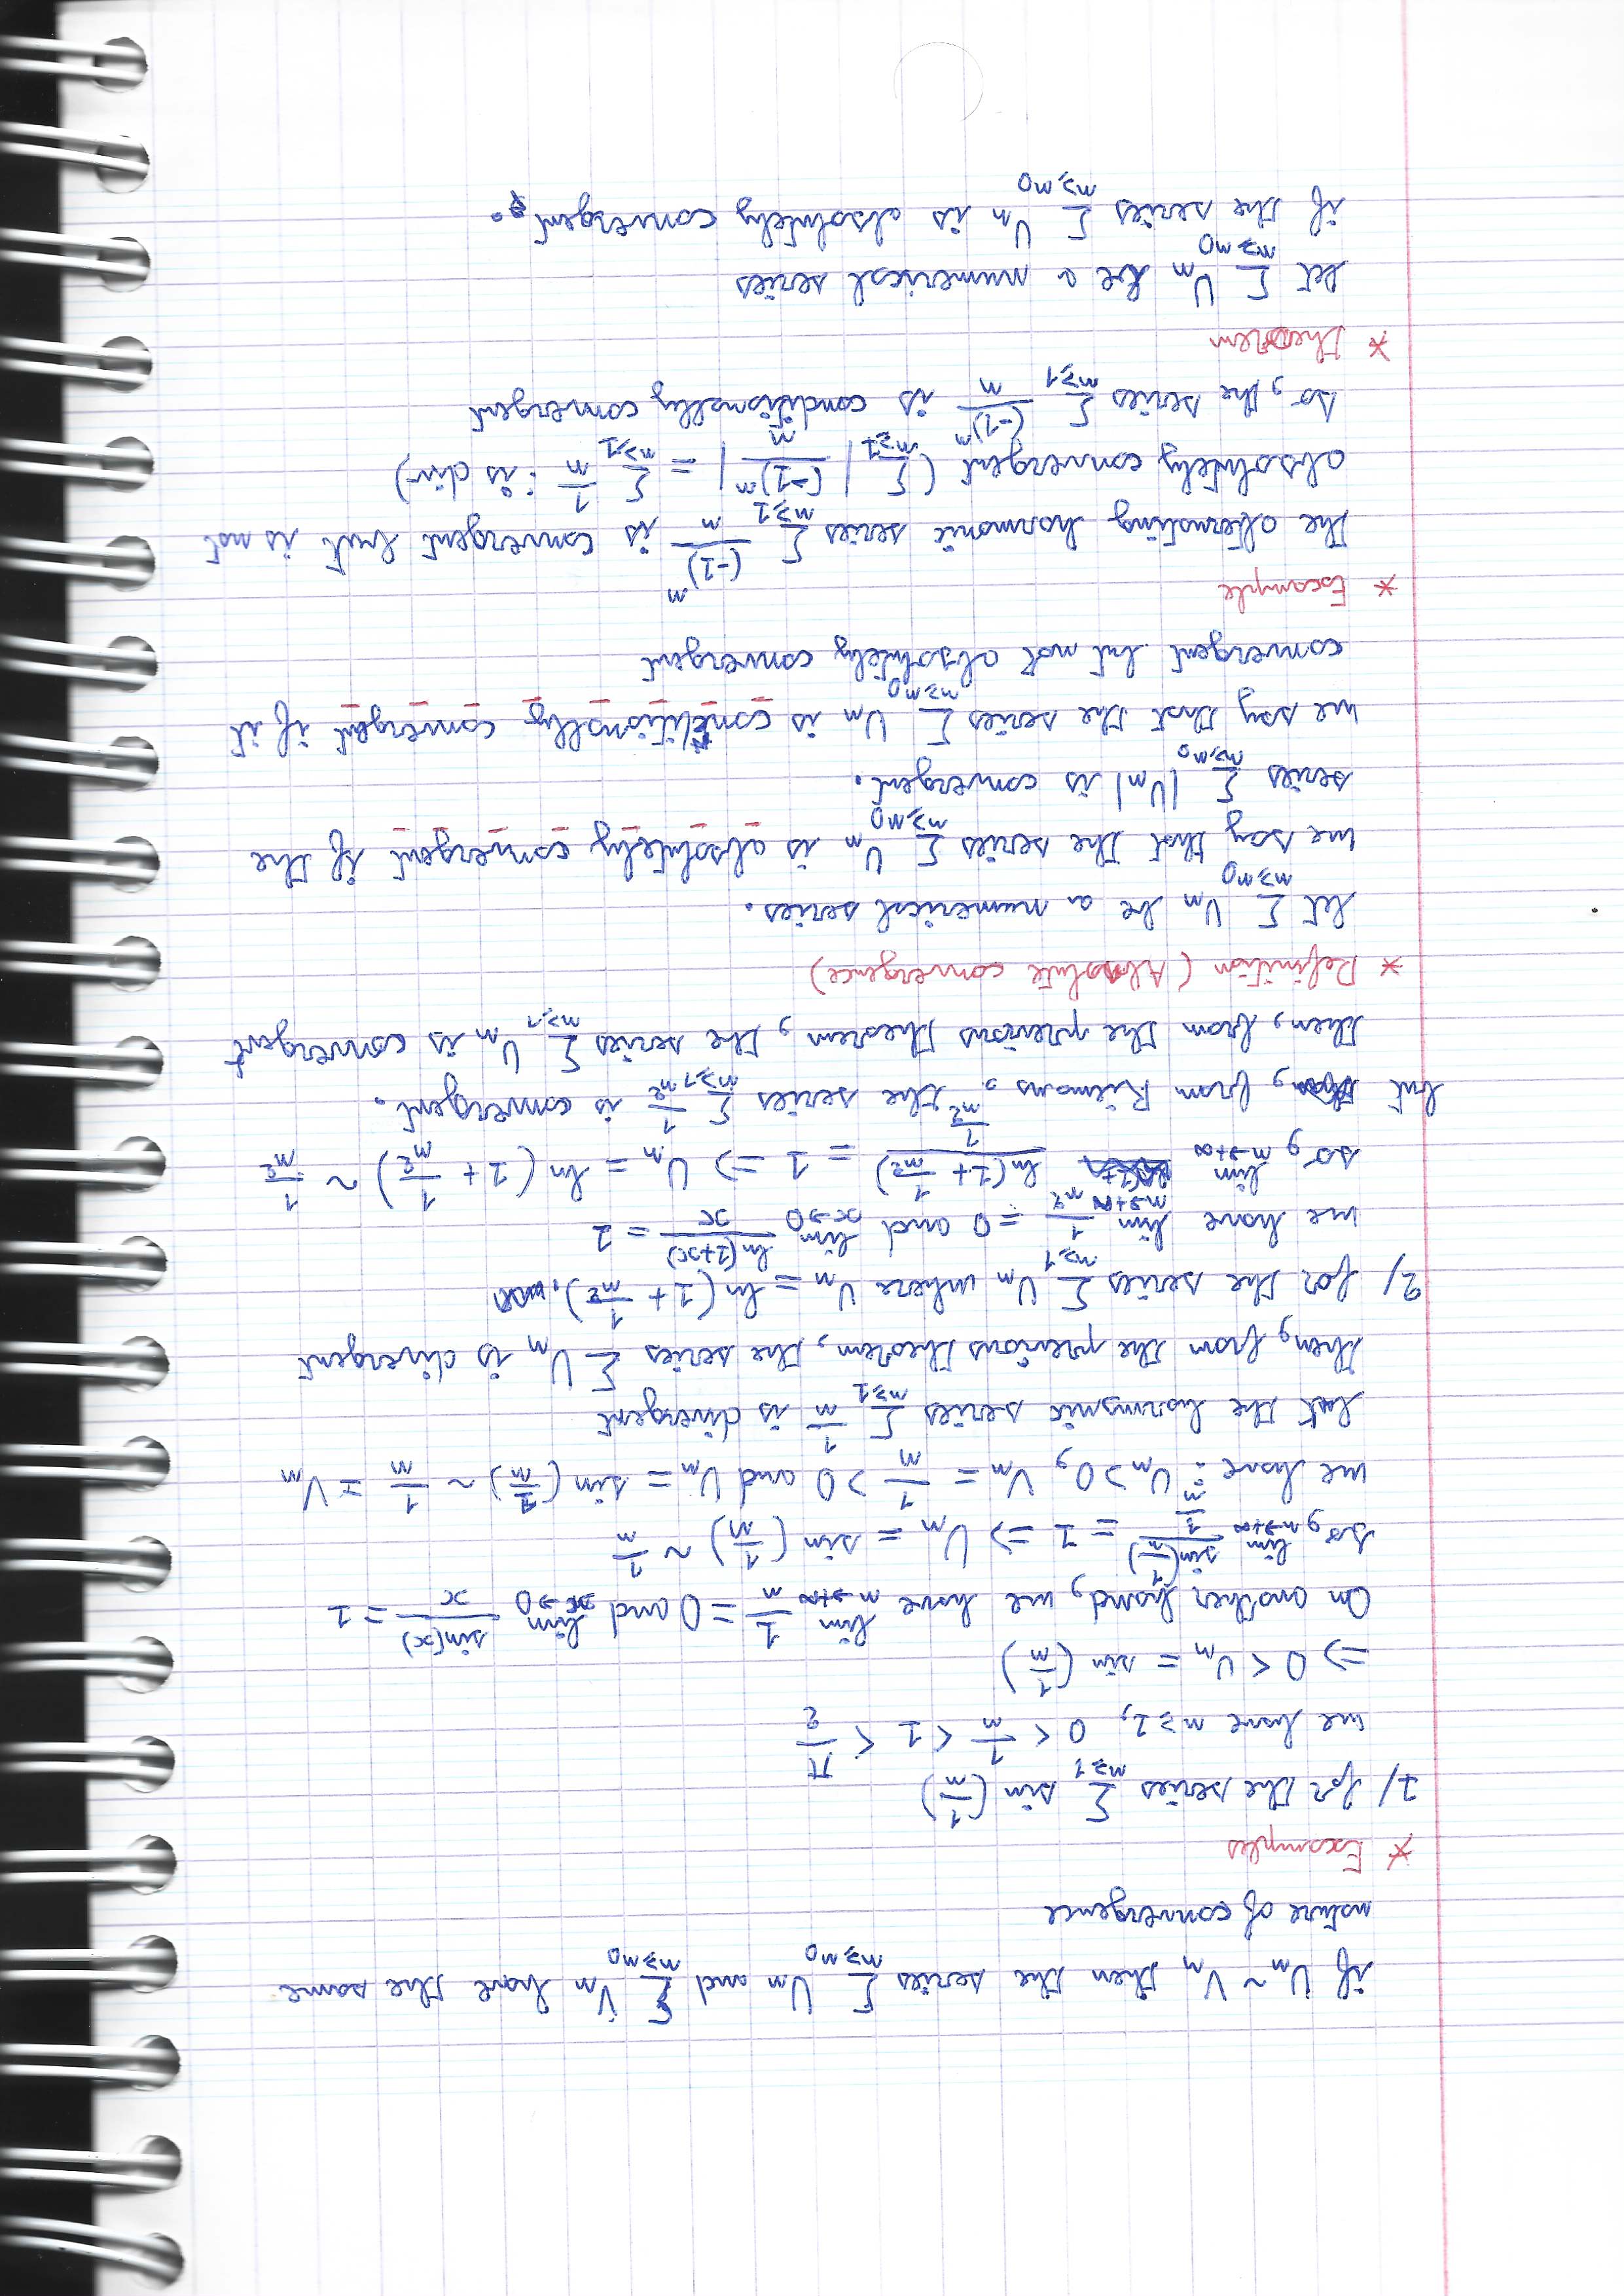 if Un ~ Vn then the series Σ_{n≥n0} Un and Σ_{n≥n0} Vn have the same
nature of convergence
* Examples
1/ for the series Σ_{n≥1} sin (1/n)
we have n≥1, 0 < 1/n < 1 < π/2
=> 0 < Un = sin (1/n)
On another hand, we have lim_{n→+∞} 1/n = 0 and lim_{x→0} sin(x)/x = 1
so, lim_{n→+∞} sin(1/n)/(1/n) = 1 => Un = sin (1/n) ~ 1/n
we have : Un > 0, Vn = 1/n > 0 and Un = sin (1/n) ~ 1/n = Vn
but the harmonic series Σ_{n≥1} 1/n is divergent
then, from the previous theorem, the series Σ Un is divergent
2/ for the series Σ_{n≥1} Un where Un = ln (1 + 1/n²).
we have lim_{n→+∞} 1/n² = 0 and lim_{x→0} ln(1+x)/x = 1
so, lim_{n→+∞} ln(1+1/n²)/(1/n²) = 1 => Un = ln (1 + 1/n²) ~ 1/n²
but from Riemans, the series Σ_{n≥1} 1/n² is convergent.
then, from the previous theorem, the series Σ_{n≥1} Un is convergent
* Definition (Absolute convergence)
let Σ_{n≥n0} Un be a numerical series.
we say that the series Σ_{n≥n0} Un is absolutely convergent if the
series Σ_{n≥n0} |Un| is convergent.
we say that the series Σ_{n≥n0} Un is conditionally convergent if it
convergent but not absolutely convergent
* Example
the alternating harmonic series Σ_{n≥1} (-1)^n/n is convergent but is not
absolutely convergent (Σ_{n≥1} |(-1)^n/n| = Σ_{n≥1} 1/n : is div)
so, the series Σ_{n≥1} (-1)^n/n is conditionally convergent
* theorem
let Σ_{n≥n0} Un be a numerical series
if the series Σ_{n≥n0} Un is absolutely convergent.